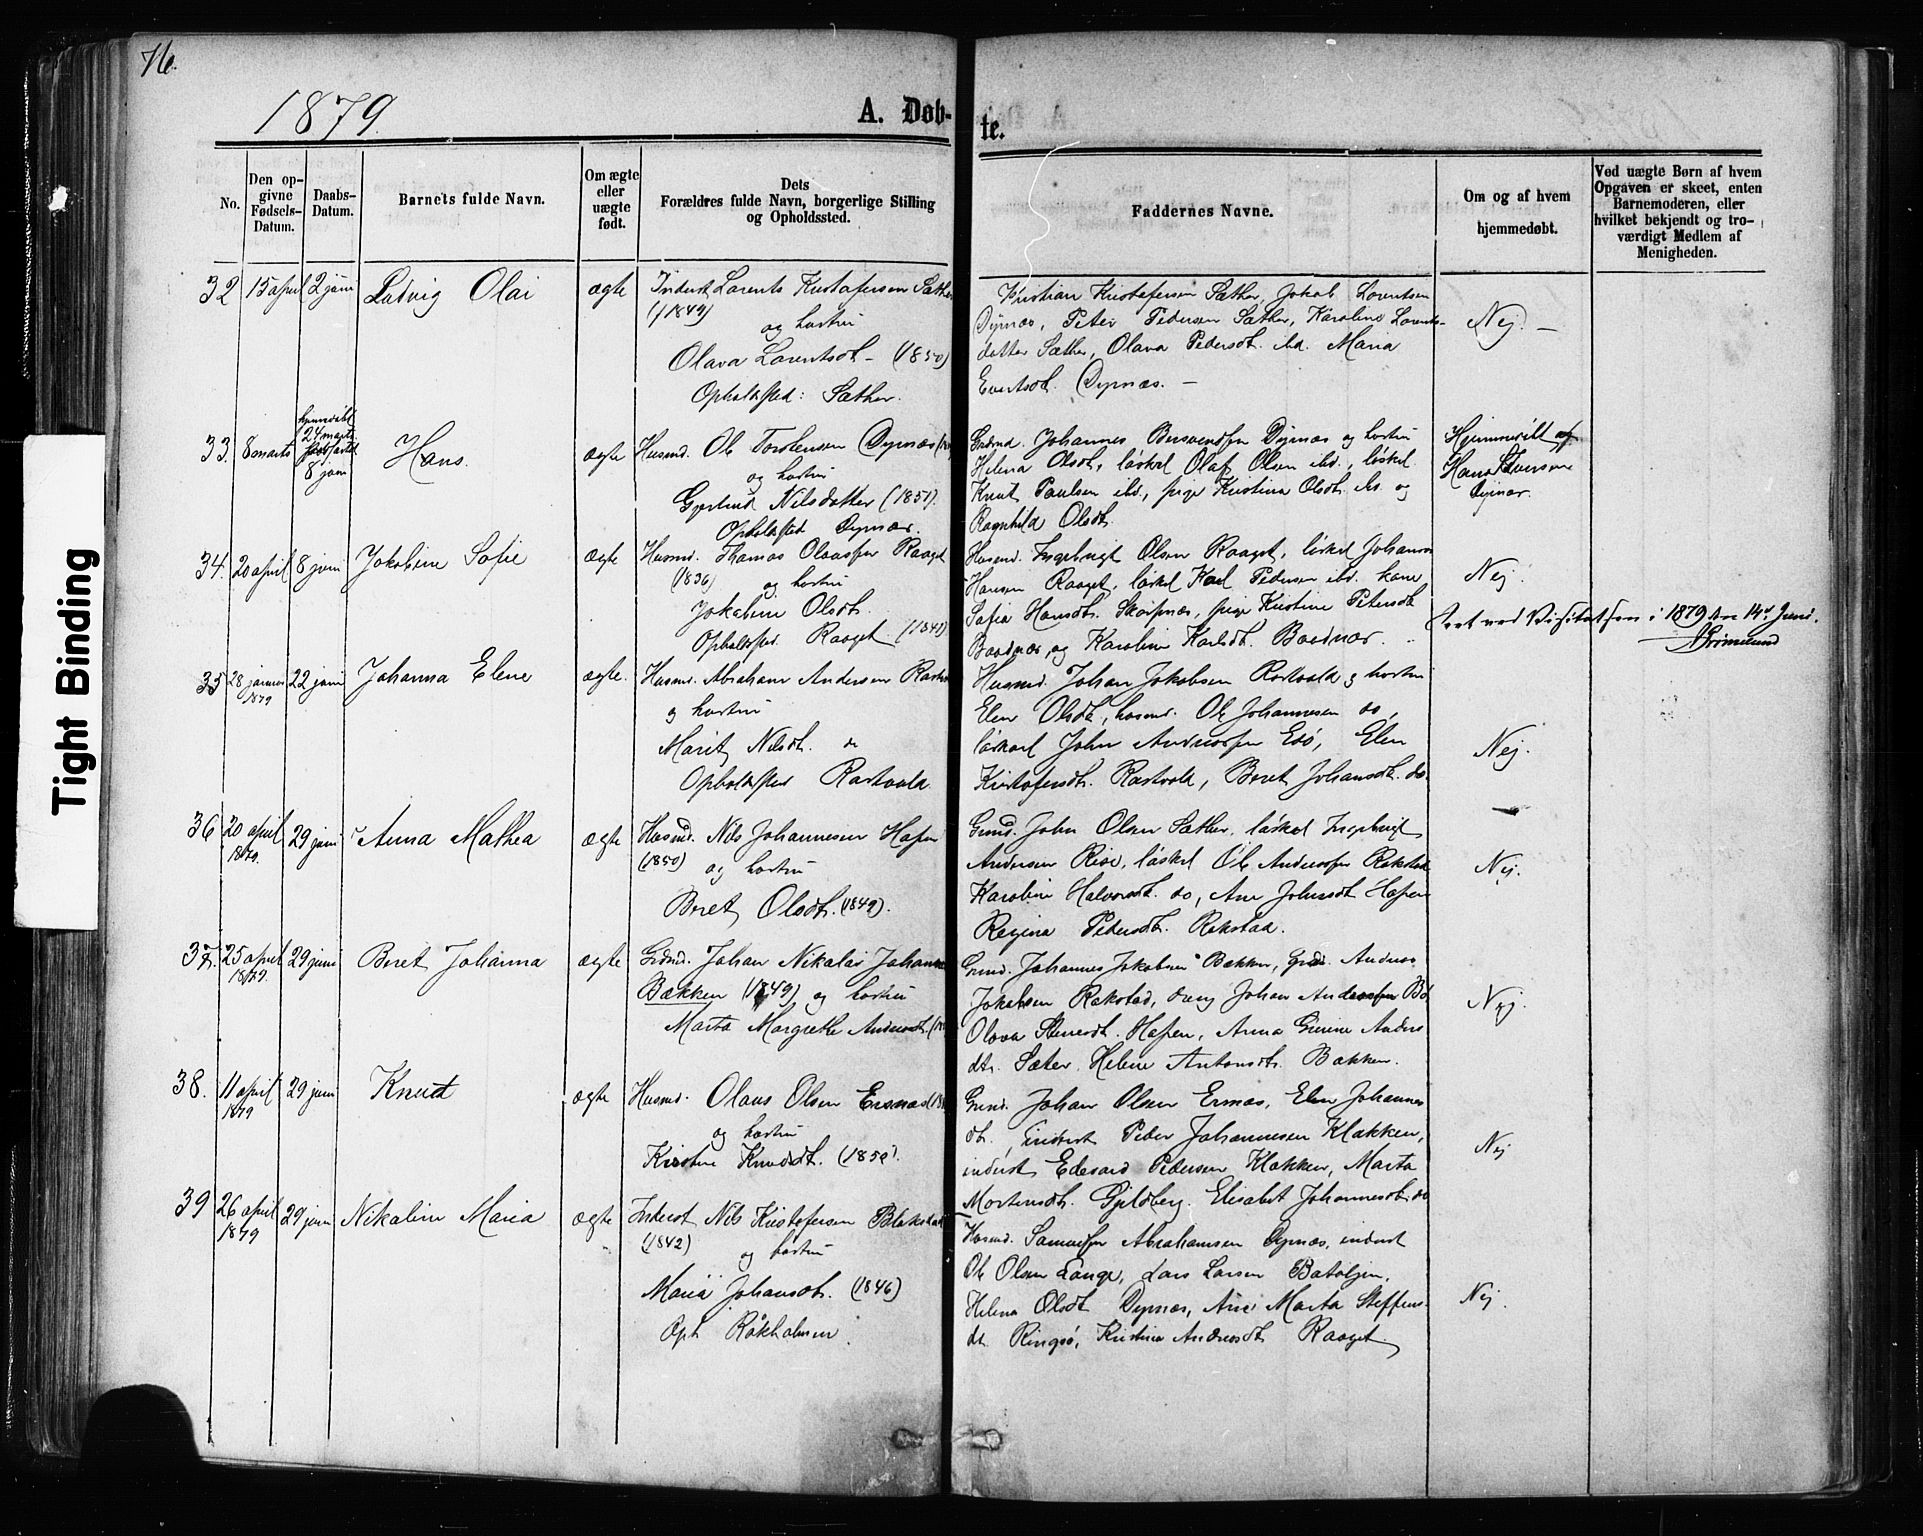 76.
1879
A. Døb-
te.
No.
Den op-
givne
Fødsels-
Datum.
Daabs-
Datum.
Barnets fulde Navn.
Om ægte
eller
uægte
født.
Dets
Forældres fulde Navn, borgerlige Stilling
og Opholdssted.
Faddernes Navne.
Om og af hvem
hjemmedøbt.
Ved uægte Børn af hvem
Opgaven er skeet, enten
Barnemoderen, eller
hvilket bekjendt og tro-
værdigt Medlem af
Menigheden.
32 15 april 2 juni Ludvig Olai ægte Inderst Lorents Kristofersen Sæther
(1849)
og hustru
Olava Lorentsdt. (1850)
Opholdssted: Sæther.
Kristian Kristofersen Sæther, Jakob Lorentsen
Dyrnæs, Peter Pedersen Sæther, Karoline Lorents-
datter Sæther, Olava Pedersdt. ibd. Maria
Evertsdt. Dyrnæs. —
Nej. —
33. 8 marts hjemmedøbt
24 marts
8 juni
Hans. ægte Husmd. Ole Torstensen Dyrnæs
og hustru
Gjertrud Nilsdatter (1851).
Opholdssted Dyrnæs.
Grdmd. Johannes Bersvendsen Dyrnæs og hustru
Helena Olsdt., løskrl Olaf Olsen ibd., løskrl.
Knut Paulsen ibd., pige Kristina Olsdt. ibd. og
Ragnhild Olsdt.
Hjemmedøbt af
Hans Iversen
Dyrnæs.
34. 20 april 8 juni Jakobine Sofie ægte Husmd. Thomas Olausen Raaget
(1836) og hustru
Jokobine Olsdt.
Opholdssted. Raaget (1841)
Husmd. Ingebrigt Olsen Raaget, løskrl Johannes
Hansen Raaget, løskrl Karl Pedersen ibd. kone
Sofia Hansdt. Skarpnæs, pige Kristine Petersdt.
Bordnæs, og Karoline Karlsdt. Bordnæs.
Nej.
Seet ved Visitatsen i 1879 den 14de Juni.
35 28 januar
1879
22 juni Johanna Elene ægte. Husmd. Abraham Andersen Rostvold
og hustru
Marit Nilsdt. do
Opholdssted Rostvold
Husmd. Johan Jakobsen Rostvold og hustru
Elen Olsdt., husmd. Ole Johannesen do,
løskarl John Andersen Edø, Elen
Kristofersdt. Rostvold, Beret Johansdt. do.
Nej.
36 20 april
1879.
29 juni Anna Mathea ægte Husmd. Nils Johannesen Hafen
(1850) og hustru
Beret Olsdt. (1849).
Grmd. John Olsen Sæther, løskrl Ingebrigt
Andersen Rise, løskrl Ole Andersen Rokstad
Karoline Halvorsdt. do, Ane Johnsdt Hafen
Regina Pedersdt. Rokstad.
Nej.
37. 25 april
1879.
29 juni Beret Johanna ægte Grdmd. Johan Nikolai Johannes
Bækken (1849) og hustru
Marta Margrethe Andersdt.
Grmd. Johannes Jakobsen Bækken, grd. Anders
Jakobsen Rokstad, dreng Johan Andersen Bø
Olava Steensdt. Hafen, Anna Gurine Anders
dt. Sæter, Helene Antonsdt. Bækken.
Nej.
38. 11 april
1879
29 juni Knud ægte Husmd. Olaus Olsen Ersnæs
og hustru
Kirstine Knudsdt. (1850).
Grmd. Johan Olsen Ersnæs, Elen Johannes
dt. Inderst Peder Johannesen Klakken,
inderst Edevard Pedersen Klakken, Marta
Mortensdt. Gjeldberg. Elisabet Johannesdt. do
Nej
39 26 april
1879
29 juni Nikoline Maria ægte Inderst Nils Kristofersen Blekstad
(1842) og hustru
Maria Johansdt. (1846)
Oph Røkholmen.
Husmd. Samuel Abrahamsen Dyrnæs, inderst
Ole Olsen Lange, Lars Larsen Bataljen,
Helena Olsdt Dyrnæs, Ane Marta Steffens-
dt Ringsø, Kristina Andersdt Raaget
Nej.
Tight Binding